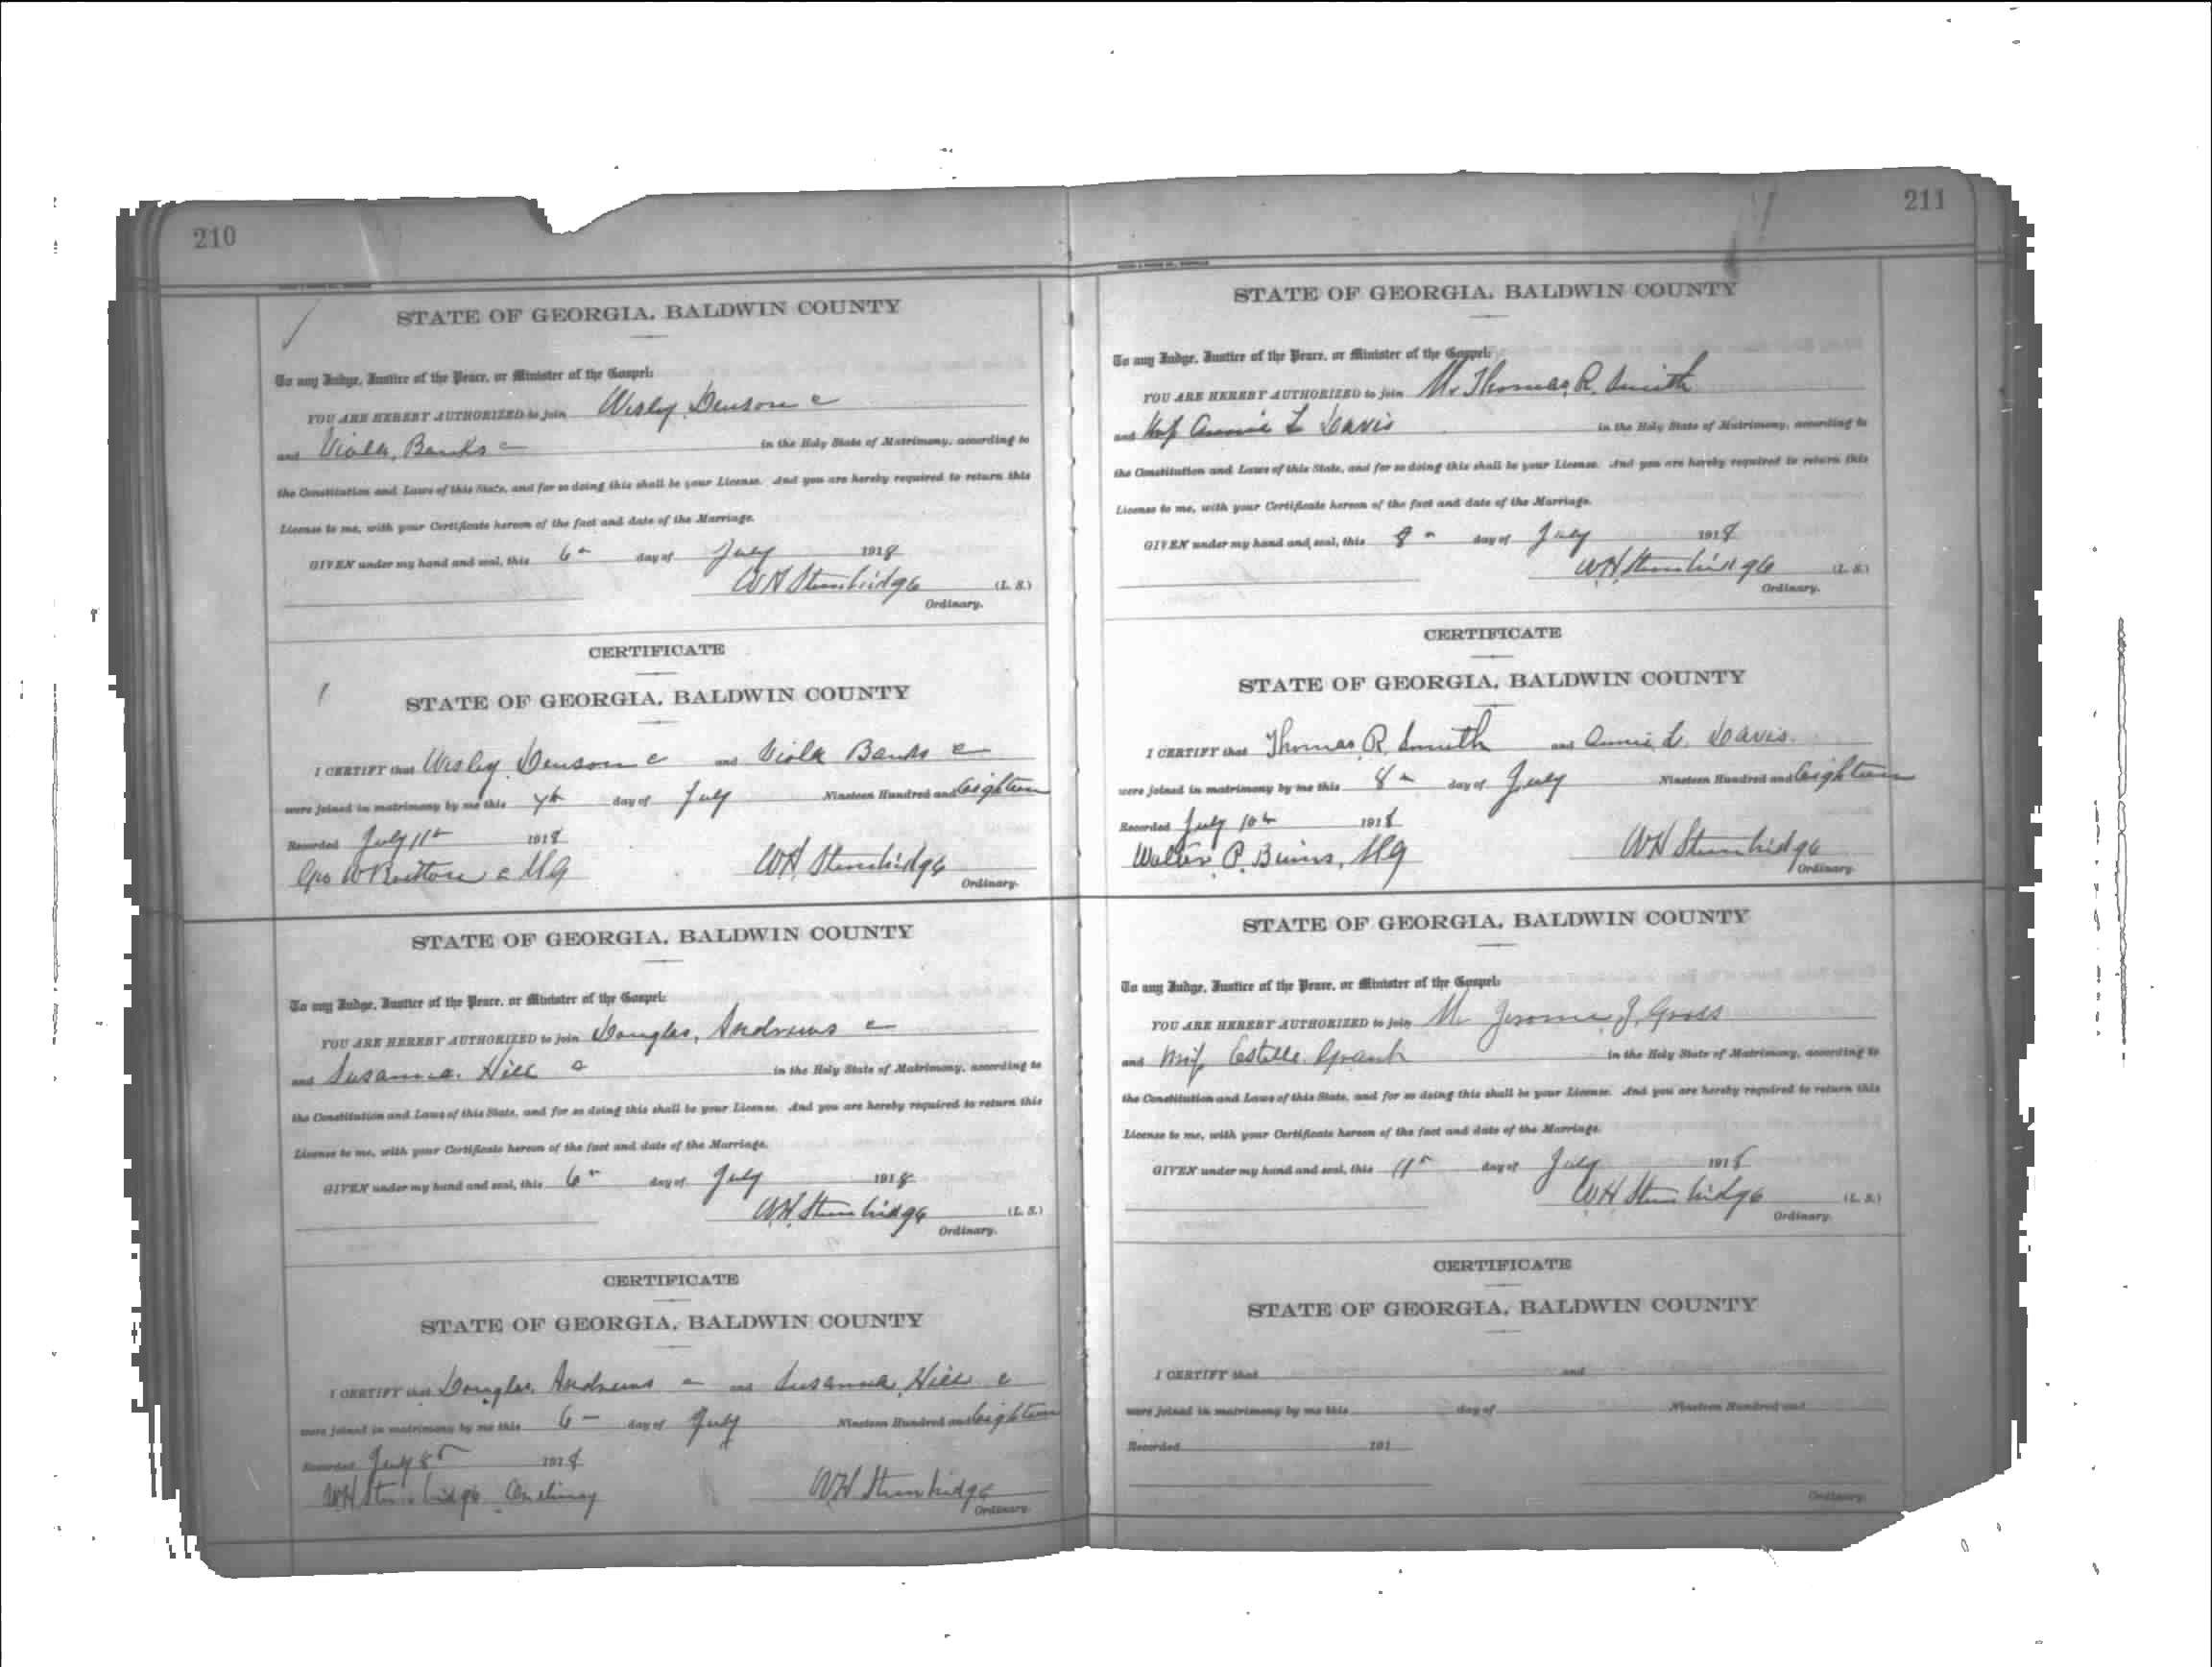 210
STATE OF GEORGIA, BALDWIN COUNTY
To any Judge, Justice of the Peace, or Minister of the Gospel:
YOU ARE HEREBY AUTHORIZED to join Wesley Denson c
and Viola Banks c in the Holy State of Matrimony, according to
the Constitution and Laws of this State, and for so doing this shall be your License. And you are hereby required to return this
License to me, with your Certificate hereon of the fact and date of the Marriage.
GIVEN under my hand and seal, this 6th day of July 1918
WH Stembridge (L. S.)
Ordinary.
CERTIFICATE
STATE OF GEORGIA, BALDWIN COUNTY
I CERTIFY that Wesley Denson c and Viola Banks c
were joined in matrimony by me this 7th day of July Nineteen Hundred and Eighteen
Recorded July 11th 1918
Geo W c MG WH Stembridge
Ordinary.
STATE OF GEORGIA, BALDWIN COUNTY
To any Judge, Justice of the Peace, or Minister of the Gospel:
YOU ARE HEREBY AUTHORIZED to join Douglas Andrews c
and Susanna Hill c in the Holy State of Matrimony, according to
the Constitution and Laws of this State, and for so doing this shall be your License. And you are hereby required to return this
License to me, with your Certificate hereon of the fact and date of the Marriage.
GIVEN under my hand and seal, this 6th day of July 1918
WH Stembridge (L. S.)
Ordinary.
CERTIFICATE
STATE OF GEORGIA, BALDWIN COUNTY
I CERTIFY that Douglas Andrews c and Susanna Hill c
were joined in matrimony by me this 6 day of July Nineteen Hundred and Eighteen
Recorded July 8th 1918
WH Stembridge Ordinary WH Stembridge
Ordinary.
211
STATE OF GEORGIA, BALDWIN COUNTY
To any Judge, Justice of the Peace, or Minister of the Gospel:
YOU ARE HEREBY AUTHORIZED to join Mr Thomas R. Smith
and Miss Annie L Davis in the Holy State of Matrimony, according to
the Constitution and Laws of this State, and for so doing this shall be your License. And you are hereby required to return this
License to me, with your Certificate hereon of the fact and date of the Marriage.
GIVEN under my hand and seal, this 8th day of July 1918
WH Stembridge (L. S.)
Ordinary.
CERTIFICATE
STATE OF GEORGIA, BALDWIN COUNTY
I CERTIFY that Thomas R. Smith and Annie L. Davis
were joined in matrimony by me this 8th day of July Nineteen Hundred and Eighteen
Recorded July 10th 1918
Walter P. Binns, MG WH Stembridge
Ordinary.
STATE OF GEORGIA, BALDWIN COUNTY
To any Judge, Justice of the Peace, or Minister of the Gospel:
YOU ARE HEREBY AUTHORIZED to join Mr Jerome J. Gross
and Miss Estelle Grant in the Holy State of Matrimony, according to
the Constitution and Laws of this State, and for so doing this shall be your License. And you are hereby required to return this
License to me, with your Certificate hereon of the fact and date of the Marriage.
GIVEN under my hand and seal, this 11th day of July 1918
WH Stembridge (L. S.)
Ordinary.
CERTIFICATE
STATE OF GEORGIA, BALDWIN COUNTY
I CERTIFY that and
were joined in matrimony by me this day of Nineteen Hundred and
Recorded 191
Ordinary.